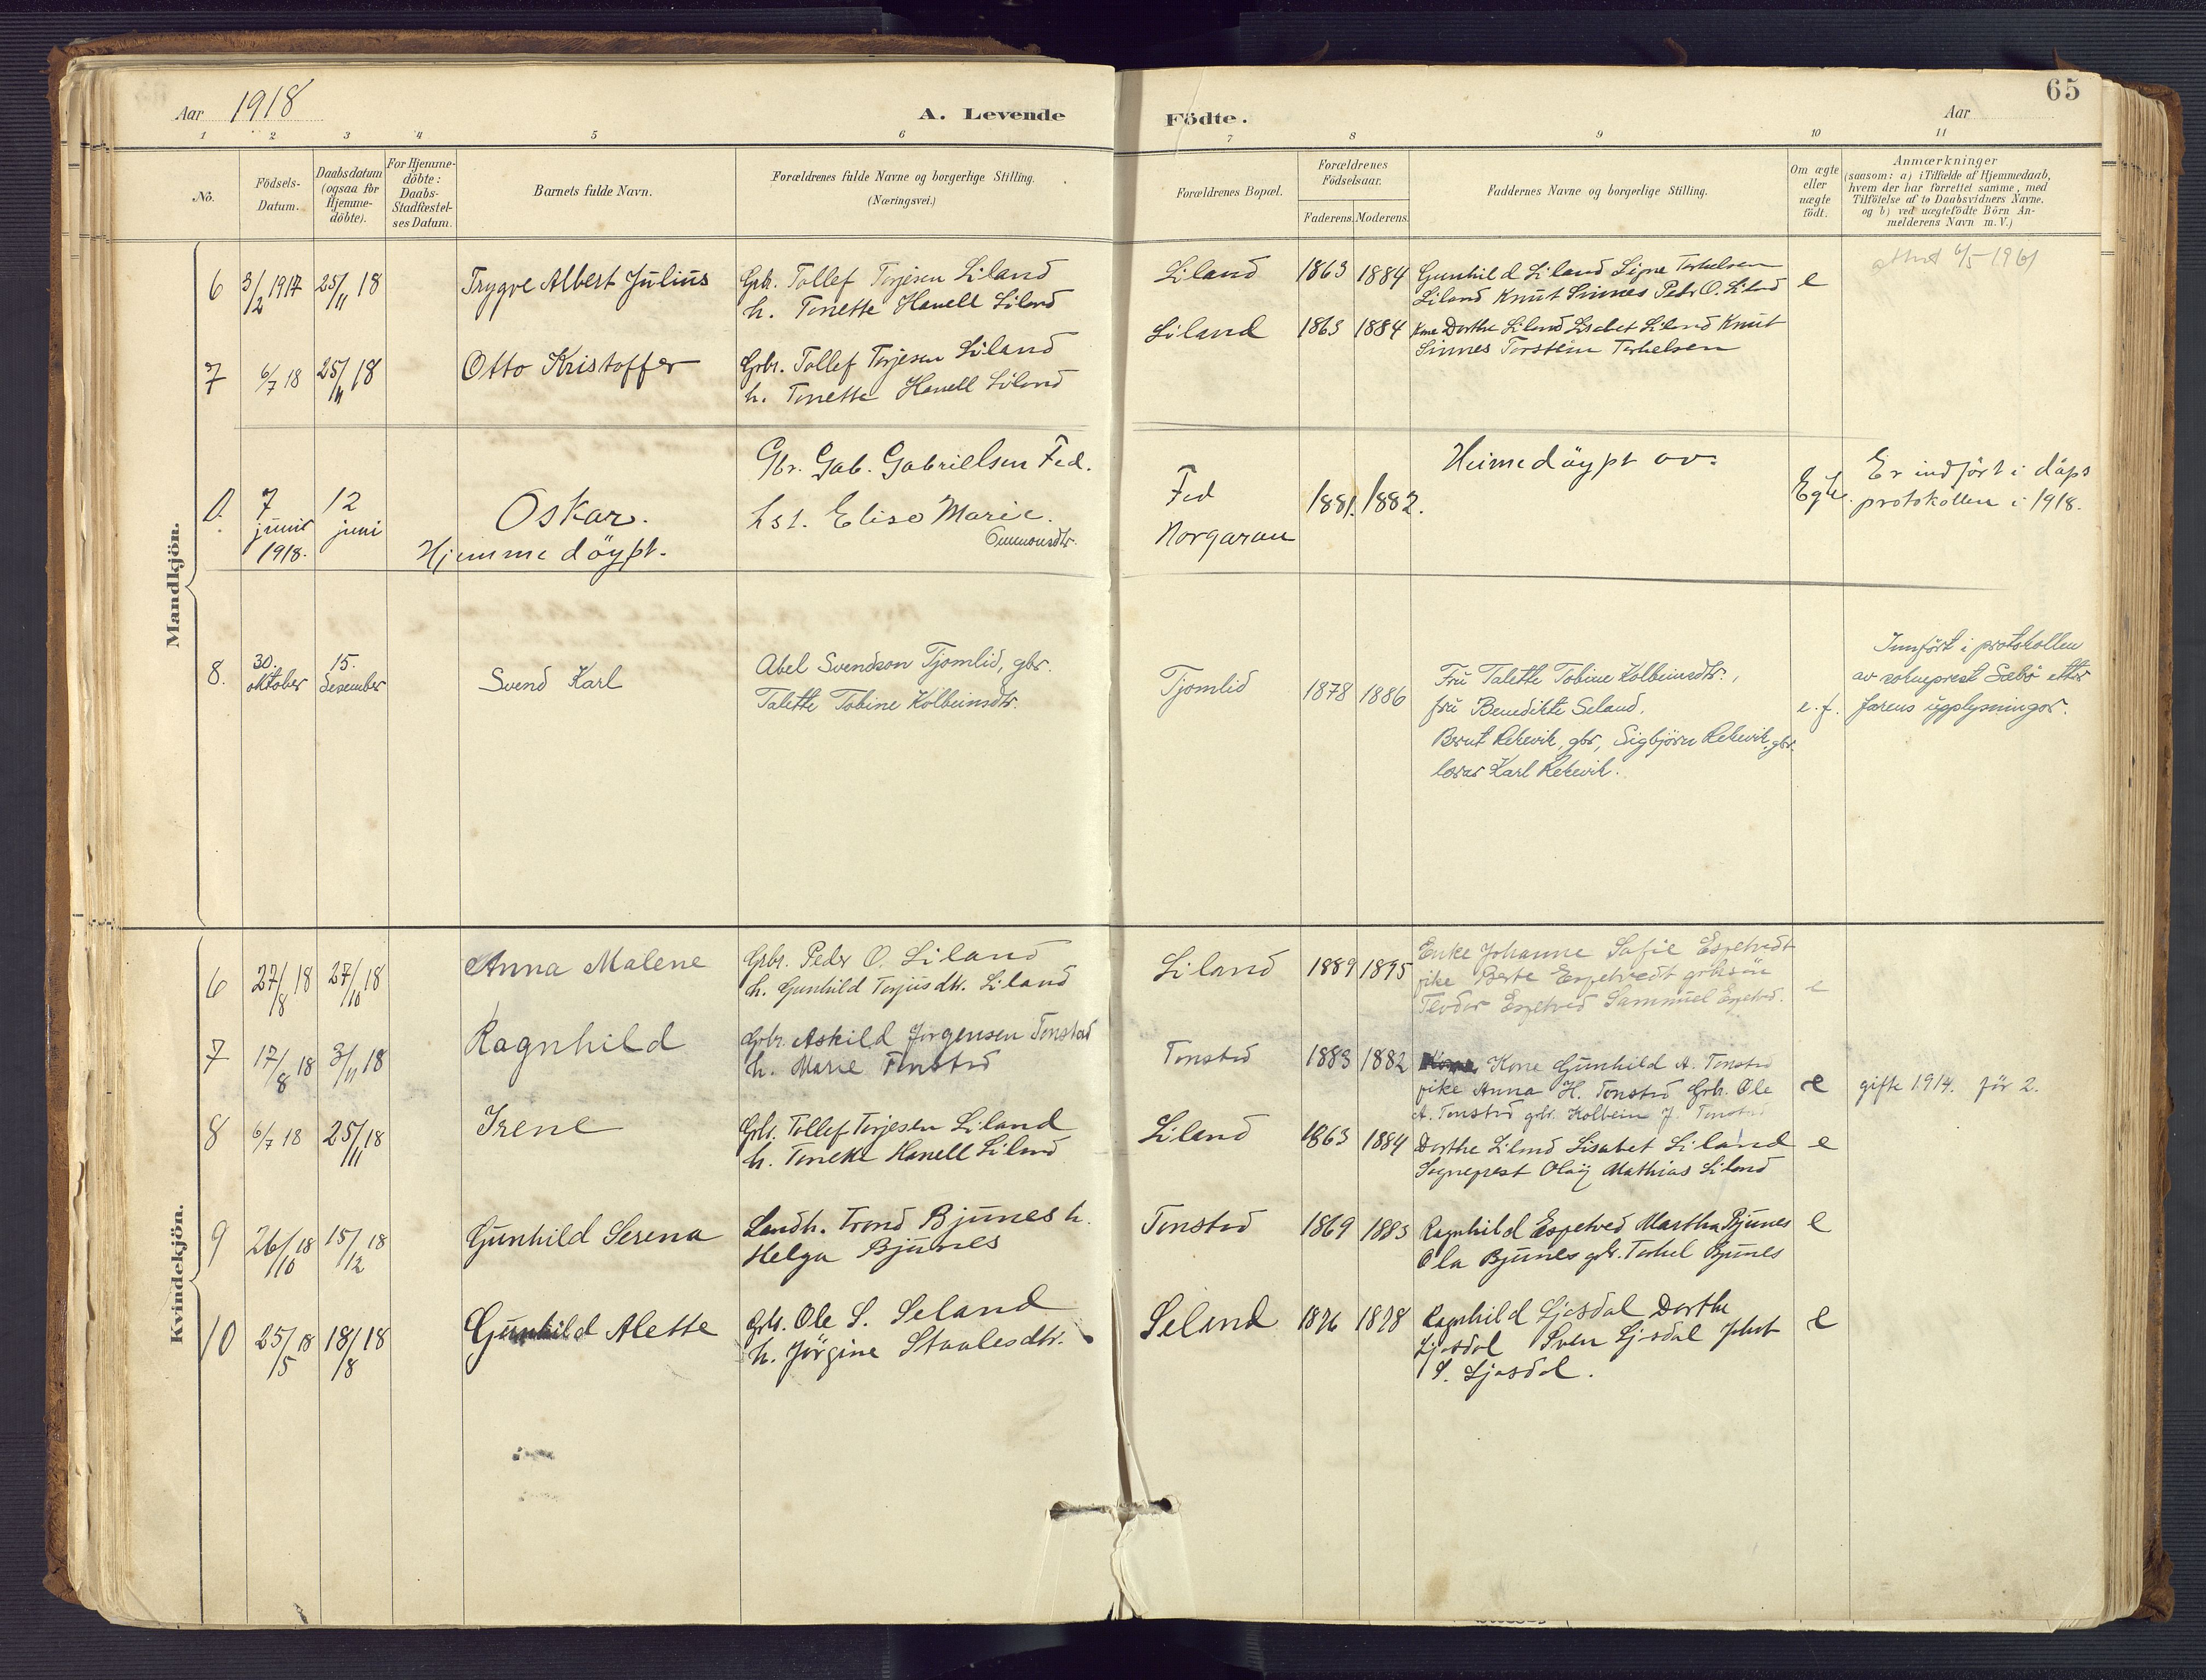 65
Aar 1918
A. Levende
Födte.
Aar
1 2 3 4 5 6 7 8 9 10 11
No.
Födsels-
Datum.
Daabsdatum
(ogsaa for
Hjemme-
döbte).
For Hjemme-
döbte:
Daabs-
Stadfæstel-
ses Datum.
Barnets fulde Navn.
Forældrenes fulde Navne og borgerlige Stilling.
(Næringsvei.)
Forældrenes Bopæl.
Forældrenes
Födselsaar.
Faderens. Moderens.
Faddernes Navne og borgerlige Stilling.
Om ægte
eller
uægte
födt.
Anmærkninger
(saasom: a) i Tilfælde af Hjemmedaab,
hvem der har forrettet samme, med
Tilföielse af to Daabsvidners Navne.
og b) ved uægtefödte Börn An-
melderens Navn m.V.)
Mandkjön.
6 3/2 1917 25/11 18 Trygve Albert Julius
Grbr. Tollef Torjesen Liland
h. Tonette Hanell Liland
Liland 1863 1884
Gunhild Liland Signe Terkelsen
Liland Knut Sinnes Peder O. Liland
e
attest 6/5-1961
7 6/7 18 25/11 18 Otto Kristoffer
Grbr. Tollef Torjesen Liland
h. Tonette Hanell Liland
Liland 1863 1884
Kone Dorthe Liland Lisabet Liland Knut
Sinnes Torstein Terkelsen
7
juni
1918.
12
juni
Oskar.
Hjemmedöypt.
Gbr. Gab. Gabrielsen Fed.
hst. Elise Marie.
Fed
Norgaran
1881. 1882.
Heimedöypt av.
Egte.
Er indfört i dåps
protokollen i 1918.
8.
30.
oktober
15.
desember
Svend Karl
Abel Svendson Tjomlid, gbr.
Talette Tobine Kolbeinsdtr.
Tjomlid 1878 1886
Fru Talette Tobine Kolbeinsdtr.,
fru Benedikte Seland,
Bernt Rekevik, gbr, Sigbjörn Rekevik, gbr.
lærar Karl Rekevik.
e. f.
Innfört i protokollen
av sokneprest Sæbö etter
farens upplysningar.
Kvindekjön.
6 27/8 18 27/10 18 Anna Malene
Grbr. Peder O. Liland
h. Gunhild Terjusdtr. Liland
Liland 1889 1895
Enke Johanne Sofie Espetvedt
pike Berte Espetvedt
Teodor Espetved Sammuel Espetved.
e
7 17/8 18 3/11 18 Ragnhild
Grbr. Askild Jörgensen Tonstad
h. Marie Tonstad
Tonstad 1883 1882
Kone Gunhild A. Tonstad
pike Anna H. Tonstad Grbr. Ole
A. Tonstad grbr. Kolbein J. Tonstad
e
gifte 1914. för 2.
8 6/7 18 25/11 18 Irene
Grbr. Tollef Torjesen Liland
h. Tonette Hanell Liland
Liland 1863 1884
Dorthe Liland Lisabet Liland
Sogneprest Olay Mathias Liland
e
9 26/10 18 15/12 18 Gunhild Serena
Landh. Trond Bjunes h.
Helga Bjunes
Tonstad 1869 1883
Ragnhild Espetved Martha Bjunes
Ola Bjunes grbr. Terkel Bjunes
e
10 25/5 18 18/8 18 Gunhild Alette
Grbr. Ole S. Seland
h. Jörgine Staalesdtr.
Seland 1876 1878
Ragnhild Ljosdal Dorthe
Ljosdal Sven Ljosdal
S. Ljosdal.
e